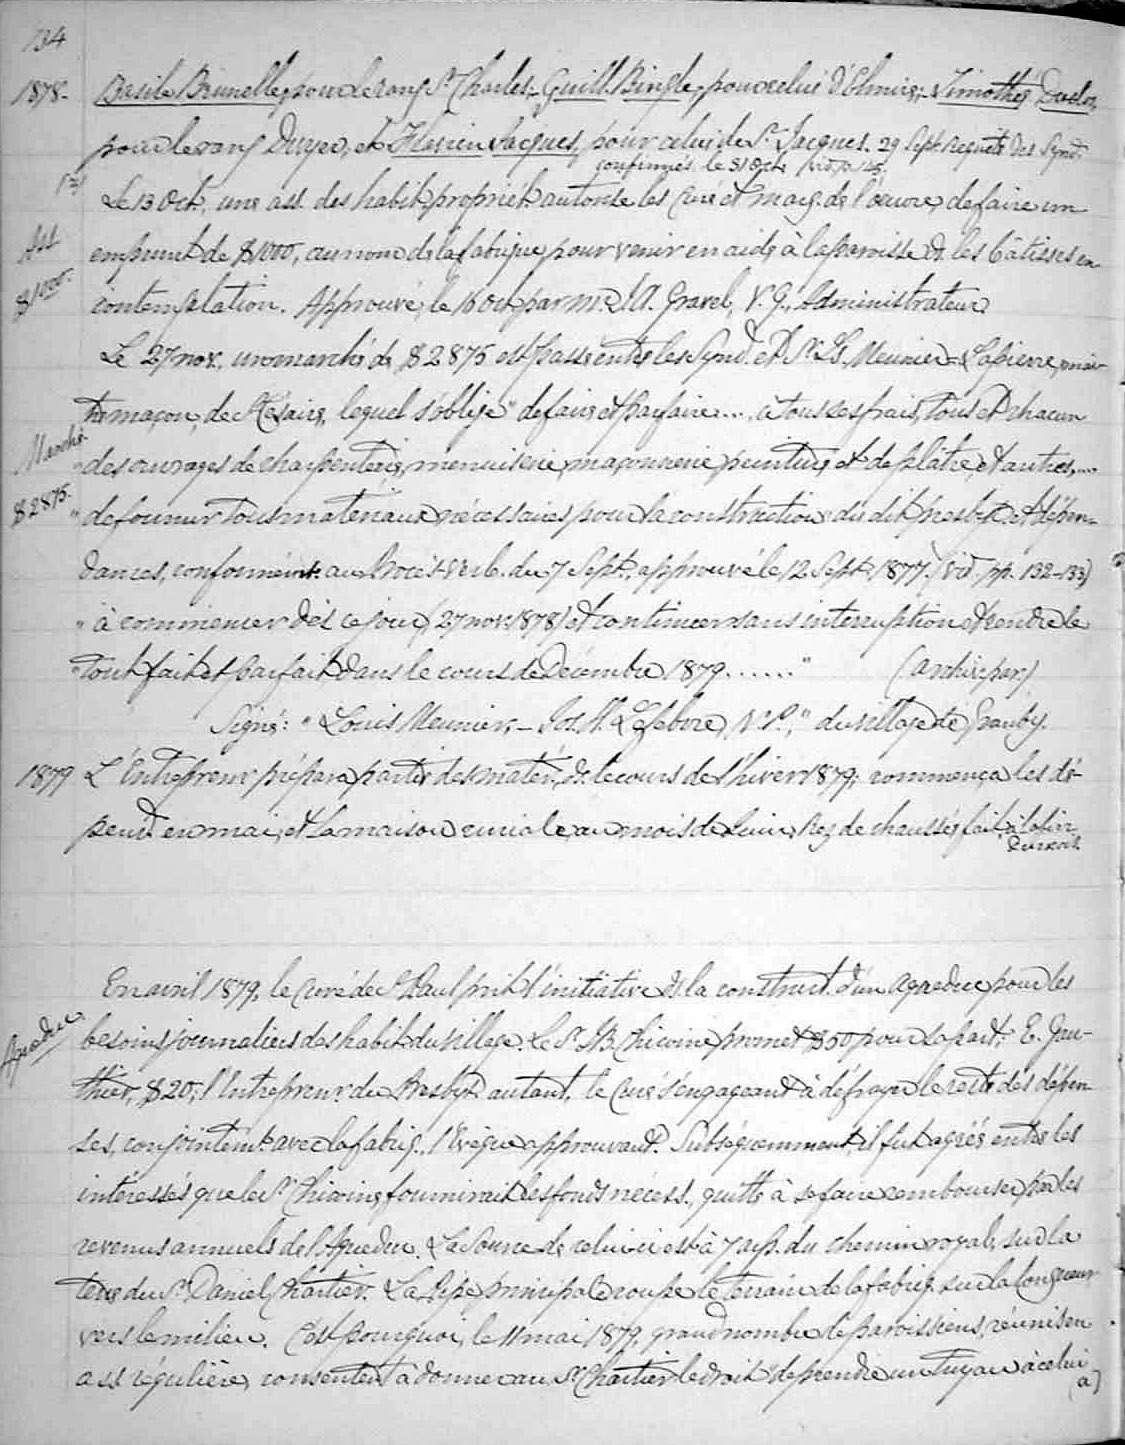 134
1878. Basile Brunelle, pour le rang St Charles; - Guill. Bingle, pour celui d'Elmire; - Timothée Duclos,
pour le rang Dwyer, et Flavien Jacques, pour celui de St Jacques. 29 Sept. Requête des Synd.
confirmés le 31 Oct. (vid. p. 125.
Le 13 Oct., une ass. des habit. propriét. autorise les Curé et marg. de l'œuvre, de faire un
Ass. emprunt de $1000, au nom de la fabrique pour venir en aide à la paroisse ds. les bâtisses en
$1000. contemplation. Approuvé, le 16 Oct. par M. I. A. Gravel, V. G., Administrateur
Le 27 nov., un marché de $2875 est passé entre les Synd. et Sr Ls. Meunier = Lapierre, maî-
tre maçon, de St Césaire, lequel s'oblige "de faire et parfaire.... à tous ses frais, tous et chacun
Marché "des ouvrages de charpenterie, menuiserie, maçonnerie, peinture, et de plâtre, et autres,....
$2875. "de fournir tous matériaux nécessaires pour la construction du dit presbyt. et dépen-
dances, conformémt. au Procès-verb. du 7 Sept., approuvé le 12 Sept. 1877. (vid. pp. 132-133)
"à commencer dès ce jour (27 nov. 1878) et continuer sans interruption et rendre le
"tout fait et parfait dans le cours de Décembre 1879......" (Archiv. par.)
Signé: "Louis Meunier, - Jos. H. Lefebvre, N. P.," du village de Granby.
1879 L'Entrepreneur prépara partie des matér. ds. le cours de l'hiver 1879; commença les dé-
pend. en mai, et la maison curiale, au mois de Juin, Rez de chaussée fait à la fin
du mois.
En avril 1879, le Curé de St Paul prit l'initiative ds. la construct. d'un Aqueduc pour les
Aqueduc. besoins journaliers des habit. du village. Le Sr J. B. Chicoine promet $50 pour sa part; E. Gau-
thier, $20; l'Entrepreneur du Presbyt. autant, le Curé s'engageant à défrayer le reste des dépen-
ses, conjointemt. avec la fabriq., l'Evêque approuvant. Subséquemment, il fut agréé entre les
intéressés que le Sr Chicoine fournirait les fonds nécess., quitte à se faire rembourser par les
revenus annuels de l'Aqueduc. La Source de celui-ci est à 7 arp. du chemin royal, sur la
terre du Sr Daniel Chartier. La Pipe principale coupe le terrain de la fabriq. sur la longueur
vers le milieu. C'est pourquoi, le 11 mai 1879, grand nombre de paroissiens, réunis en
ass. régulière, consentent à donner au Sr Chartier le droit "de prendre un tuyau à celui
(a)